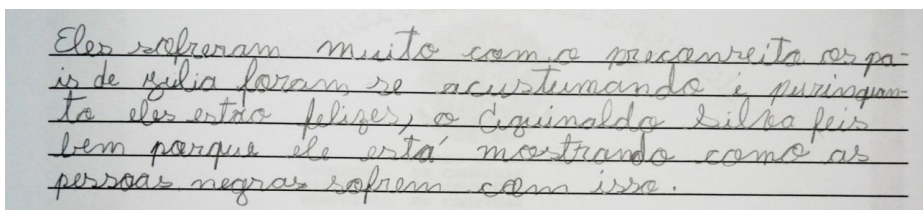 Eles sofreram muito com o preconseito os pa-
is de zilia foram se acustumando é purinquan-
to eles estão felizes, o Aguinaldo Silva feis
bem porque ele está mostrando como as
pessoas negras sofrem com isso.